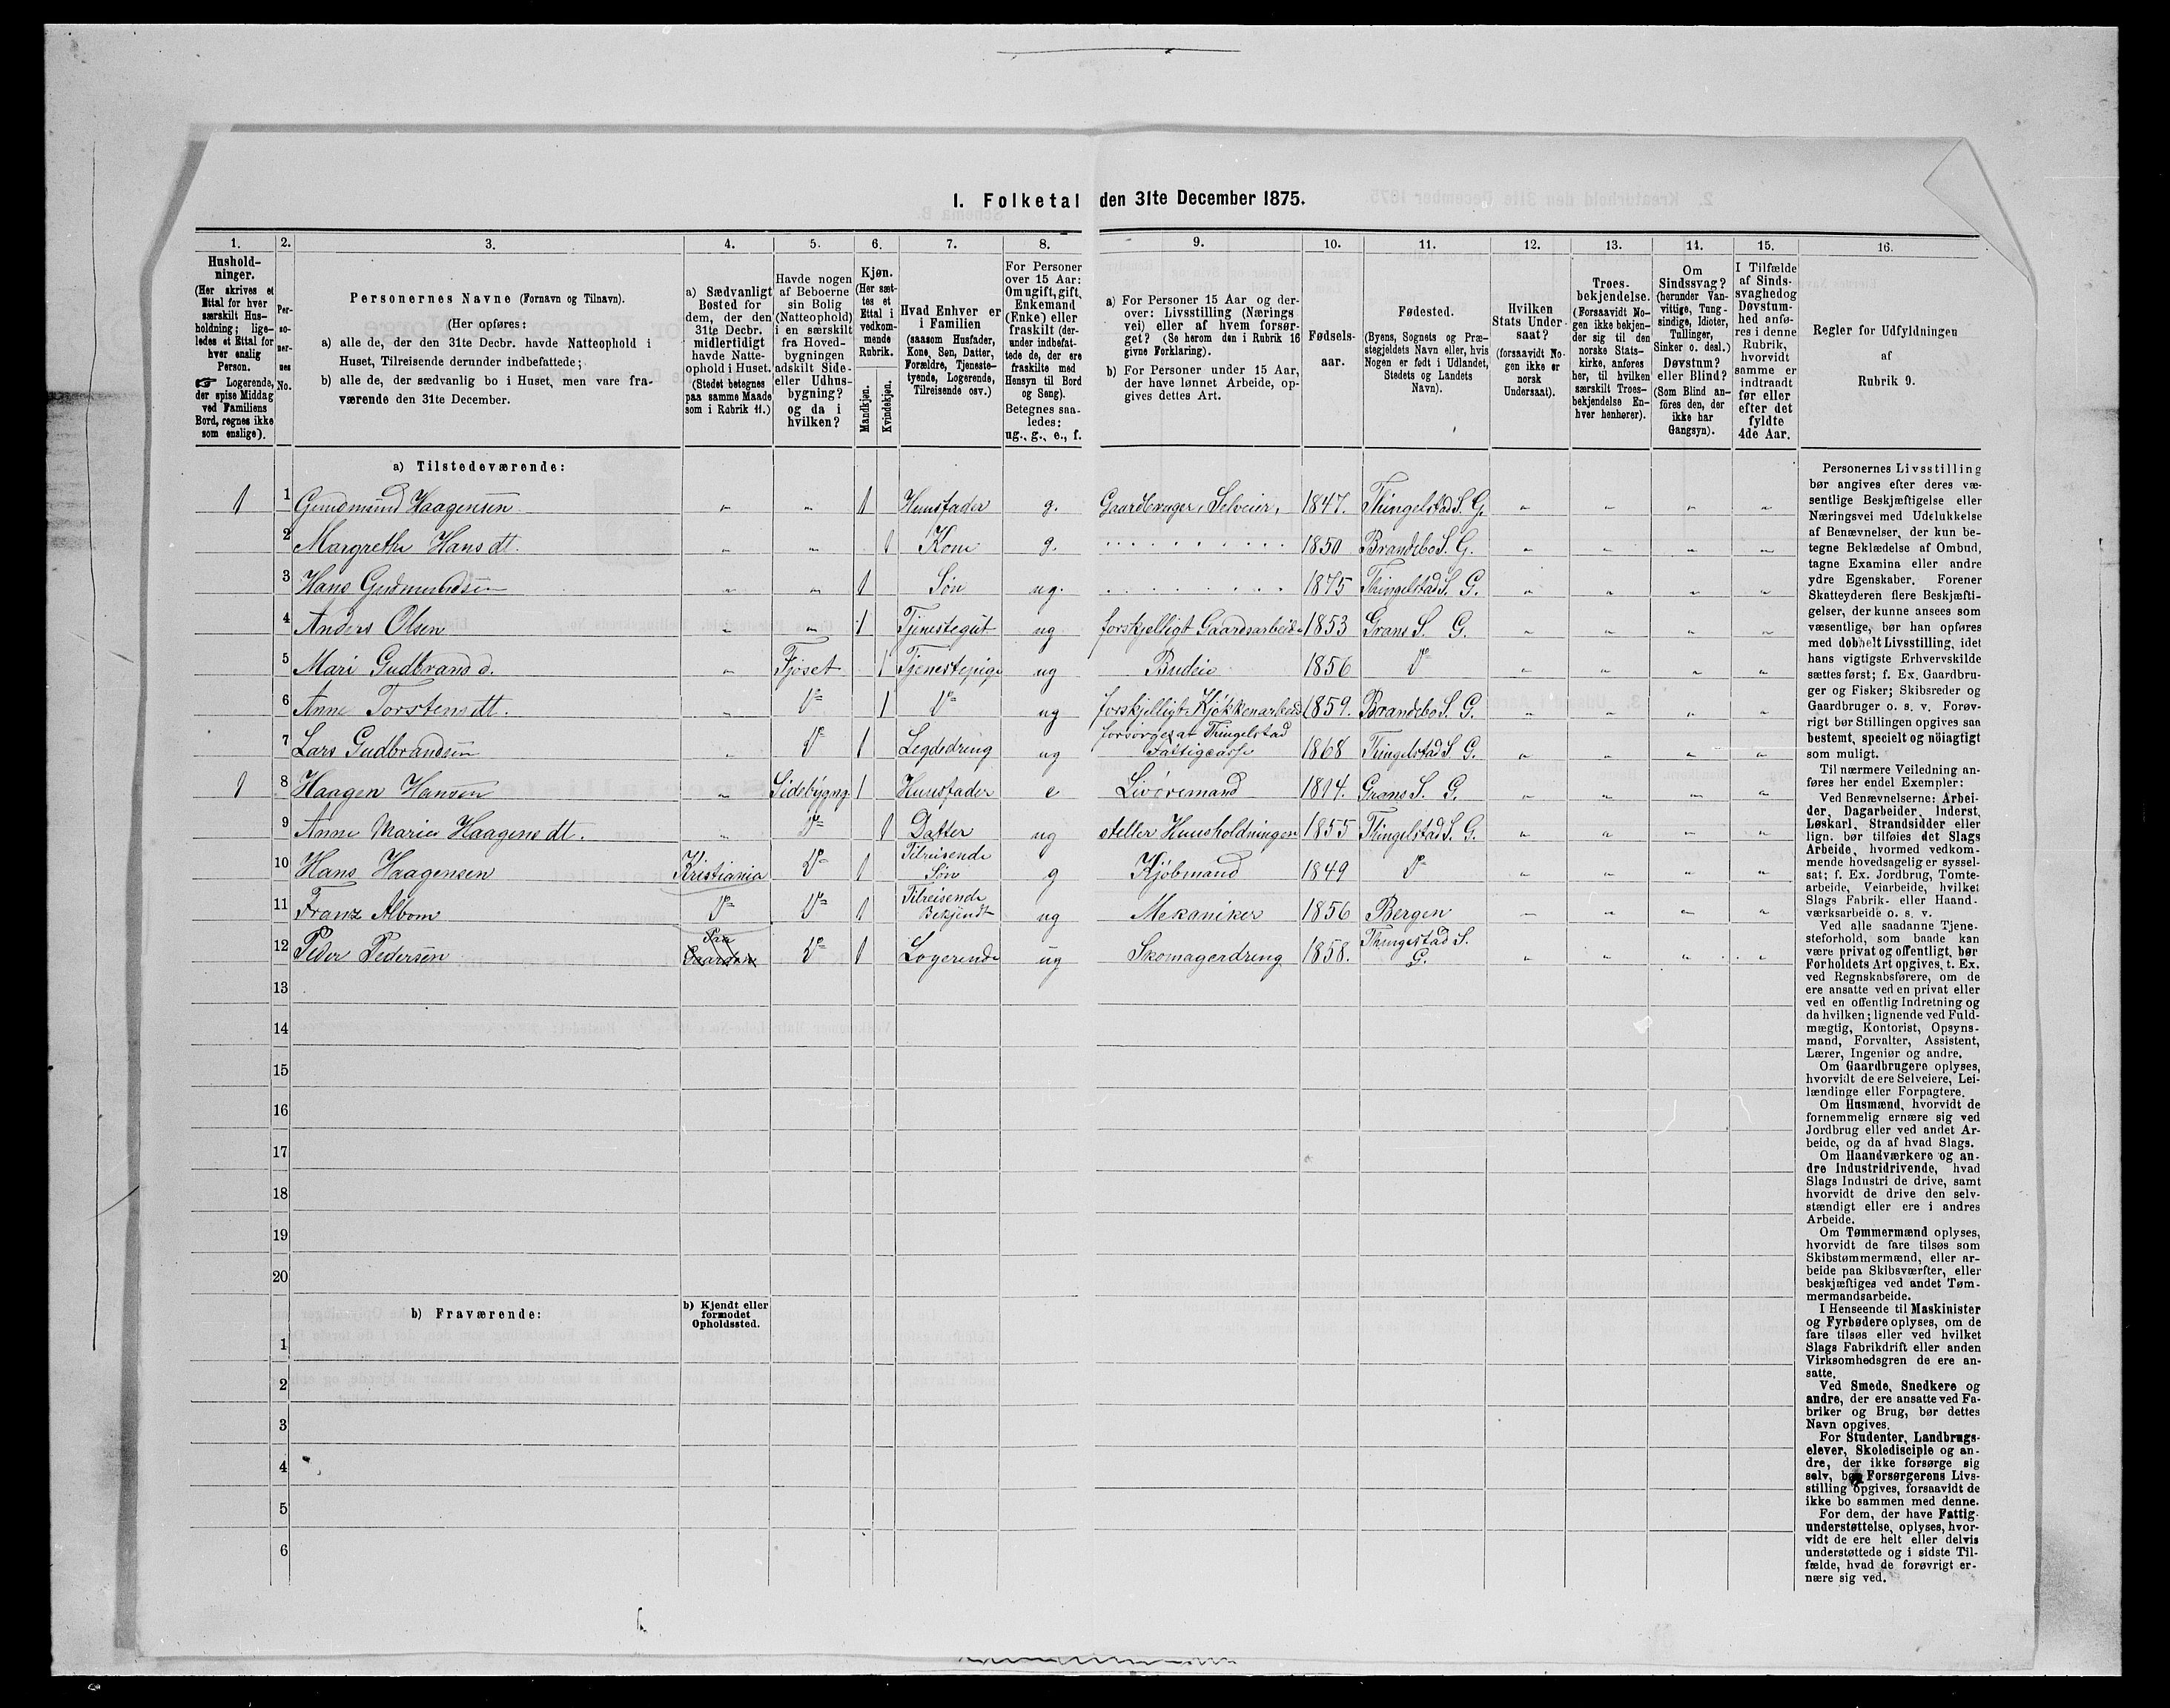 I. Folketal den 31te December 1875.
1. 2. 3. 4. 5. 6. 7. 8. 9. 10. 11. 12. 13. 14. 15. 16.
Hushold-
ninger.
(Her skrives et
Ettal for hver
særskilt Hus-
holdning; lige-
ledes et Ettal for
hver enslig
Person.
☞ Logerende,
der spise Middag
ved Familiens
Bord, regnes ikke
som enslige).
Per-
so-
ner-
nes
No.
Personernes Navne (Fornavn og Tilnavn).
(Her opføres:
a) alle de, der den 31te Decbr. havde Natteophold i
Huset, Tilreisende derunder indbefattede;
b) alle de, der sædvanlig bo i Huset, men vare fra-
værende den 31te December.
a) Sædvanligt
Bosted for
dem, der den
31te Decbr.
midlertidigt
havde Natte-
ophold i Huset.
(Stedet betegnes
paa samme Maade
som i Rubrik 11.)
Havde nogen
af Beboerne
sin Bolig
(Natteophold)
i en særskilt
fra Hoved-
bygningen
adskilt Side-
eller Udhus-
bygning?
og da i
hvilken?
Kjøn.
(Her sæt-
tes et
Ettal i
vedkom-
mende
Rubrik.
Mandkjøn.
Kvindekjøn.
Hvad Enhver er
i Familien
(saasom Husfader,
Kone, Søn, Datter,
Forældre, Tjeneste-
tyende, Logerende,
Tilreisende osv.)
For Personer
over 15 Aar:
Om ugift, gift,
Enkemand
(Enke) eller
fraskilt (der-
under indbefat-
tede de, der ere
fraskilte med
Hensyn til Bord
og Seng).
Betegnes saa-
ledes:
ug., g., e., f.
a) For Personer 15 Aar og der-
over: Livsstilling (Nærings
vei) eller af hvem forsør-
get? (Se herom den i Rubrik 16
givne Forklaring).
b) For Personer under 15 Aar,
der have lønnet Arbeide, op-
gives dettes Art.
Fødsels-
aar.
Fødested.
(Byens, Sognets og Præ-
stegjeldets Navn eller, hvis
Nogen er født i Udlandet,
Stedets og Landets
Navn).
Hvilken
Stats Under-
saat?
(forsaavidt No-
gen ikke er
norsk
Undersaat).
Troes-
bekjendelse.
(Forsaavidt No-
gen ikke bekjen-
der sig til den
norske Stats-
kirke, anføres
her, til hvilken
særskilt Troes-
bekjendelse En-
hver henhører).
Om
Sindssvag?
(herunder Van-
vittige, Tung-
sindige, Idioter,
Tullinger,
Sinker o. desl.)
Døvstum?
eller Blind?
(Som Blind an-
föres den, der
ikke har
Gangsyn).
I Tilfælde
af Sinds-
svaghed og
Døvstum-
hed anfø-
res i denne
Rubrik,
hvorvidt
samme er
indtraadt
før eller
efter det
fyldte
4de Aar.
Regler for Udfyldningen
af
Rubrik 9.
a) Tilstedeværende:
1 1 Gudmund Haagensen „ „ 1 Huusfader g. Gaardbruger, Selveier, 1847. Thingelstad S. G. „ „ „ „
2 Margrethe Hansdt. „ „ 1 Kone g. 1850 Brandebo S. G. „ „ „ „
3 Hans Gudmundsen „ „ 1 Søn ug. 1875 Thingelstad S. G. „ „ „ „
4 Anders Olsen „ „ 1 Tjenestegut ug forskjelligt Gaardsarbeide 1853 Grans S. G. „ „ „ „
5 Mari Gudbrandsd. „ Fjøset 1 Tjenestepige ug Budeie 1856 Do „ „ „ „
6 Anne Torstensdt. „ Do 1 Do ug forskjelligt Kjøkkenarbeide 1859. Brandebo S. G. „ „ „ „
7 Lars Gudbrandsen „ Do 1 Legdedreng ug forsørges af Thingelstad Fattigcasse 1868 Thingelstad S. G. „ „ „ „
1 8 Haagen Hansen „ Sidebygng 1 Huusfader e Livøremand 1814. Grans S. G. „ „ „ „
9 Anne Marie Haagensdt. „ Do 1 Datter ug steller Huusholdningen 1855 Thingelstad S. G. „ „ „ „
10 Hans Haagensen Kristiania Do 1 Tilreisende Søn g Kjøbmand 1849 Do „ „ „ „
11 Franz Albom Do Do 1 Tilreisende Bekjendt ug Mekaniker 1856 Bergen „ „ „ „
12 Peder Pedersen Paa Gaarden Do 1 Logerende ug Skomagerdreng 1858. Thingelstad S. G. „ „ „ „
13
14
15
16
17
18
19
20
b) Fraværende:
b) Kjendt eller
formodet
Opholdssted.
1
2
3
4
5
6
Personernes Livsstilling
bør angives efter deres væ-
sentlige Beskjæftigelse eller
Næringsvei med Udelukkelse
af Benævnelser, der kun be-
tegne Beklædelse af Ombud,
tagne Examina eller andre
ydre Egenskaber. Forener
Skatteyderen flere Beskjæfti-
gelser, der kunne ansees som
væsentlige, bør han opføres
med dobbelt Livsstilling, idet
hans vigtigste Erhvervskilde
sættes først; f. Ex. Gaardbru-
ger og Fisker; Skibsreder og
Gaardbruger o. s. v. Forøv-
rigt bør Stillingen opgives saa
bestemt, specielt og nöiagtigt
som muligt.
Til nærmere Veiledning an-
føres her endel Exempler:
Ved Benævnelserne: Arbei-
der, Dagarbeider, Inderst,
Løskarl, Strandsidder eller
lign. bør tilføies det Slags
Arbeide, hvormed vedkom-
mende hovedsagelig er syssel-
sat; f. Ex. Jordbrug, Tomte-
arbeide, Veiarbeide, hvilket
Slags Fabrik- eller Haand-
værksarbeide o. s. v.
Ved alle saadanne Tjene-
steforhold, som baade kan
være privat og offentlig, bør
Forholdets Art opgives, t. Ex.
ved Regnskabsførere, om de
ere ansatte ved en privat eller
ved en offentlig Indretning og
da hvilken; lignende ved Fuld-
mægtig, Kontorist, Opsyns-
mand, Forvalter, Assistent,
Lærer, Ingeniør og andre.
Om Gaardbrugere oplyses,
hvorvidt de ere Selveiere, Lei-
lændinge eller Forpagtere.
Om Husmænd, hvorvidt de
fornemmelig ernære sig ved
Jordbrug eller ved andet Ar-
beide, og da af hvad Slags.
Om Haandværkere og an-
dre Industridrivende, hvad
Slags Industri de drive, samt
hvorvidt de drive den selv-
stændigt eller ere i andres
Arbeide.
Om Tømmermænd oplyses,
hvorvidt de fare tilsøs som
Skibstømmermænd, eller ar-
beide paa Skibsværfter, eller
beskjæftiges ved andet Tøm-
mermandsarbeide.
I Henseende til Maskinister
og Fyrbødere oplyses, om de
fare tilsøs eller ved hvilket
Slags Fabrikdrift eller anden
Virksomhedsgren de ere an-
satte.
Ved Smede, Snedkere og
andre, der ere ansatte ved Fa-
briker og Brug, bør dettes
Navn opgives.
For Studenter, Landbrugs-
elever, Skoledisciple og an-
dre, der ikke forsørge sig
selv, bør Forsørgerens Livs-
stilling opgives, forsaavidt de
ikke bo sammen med denne.
For dem, der have Fattig-
understøttelse, oplyses, hvor-
vidt de ere helt eller delvis
understøttede og i sidste Til-
fælde, hvad de forøvrigt er-
nære sig ved.